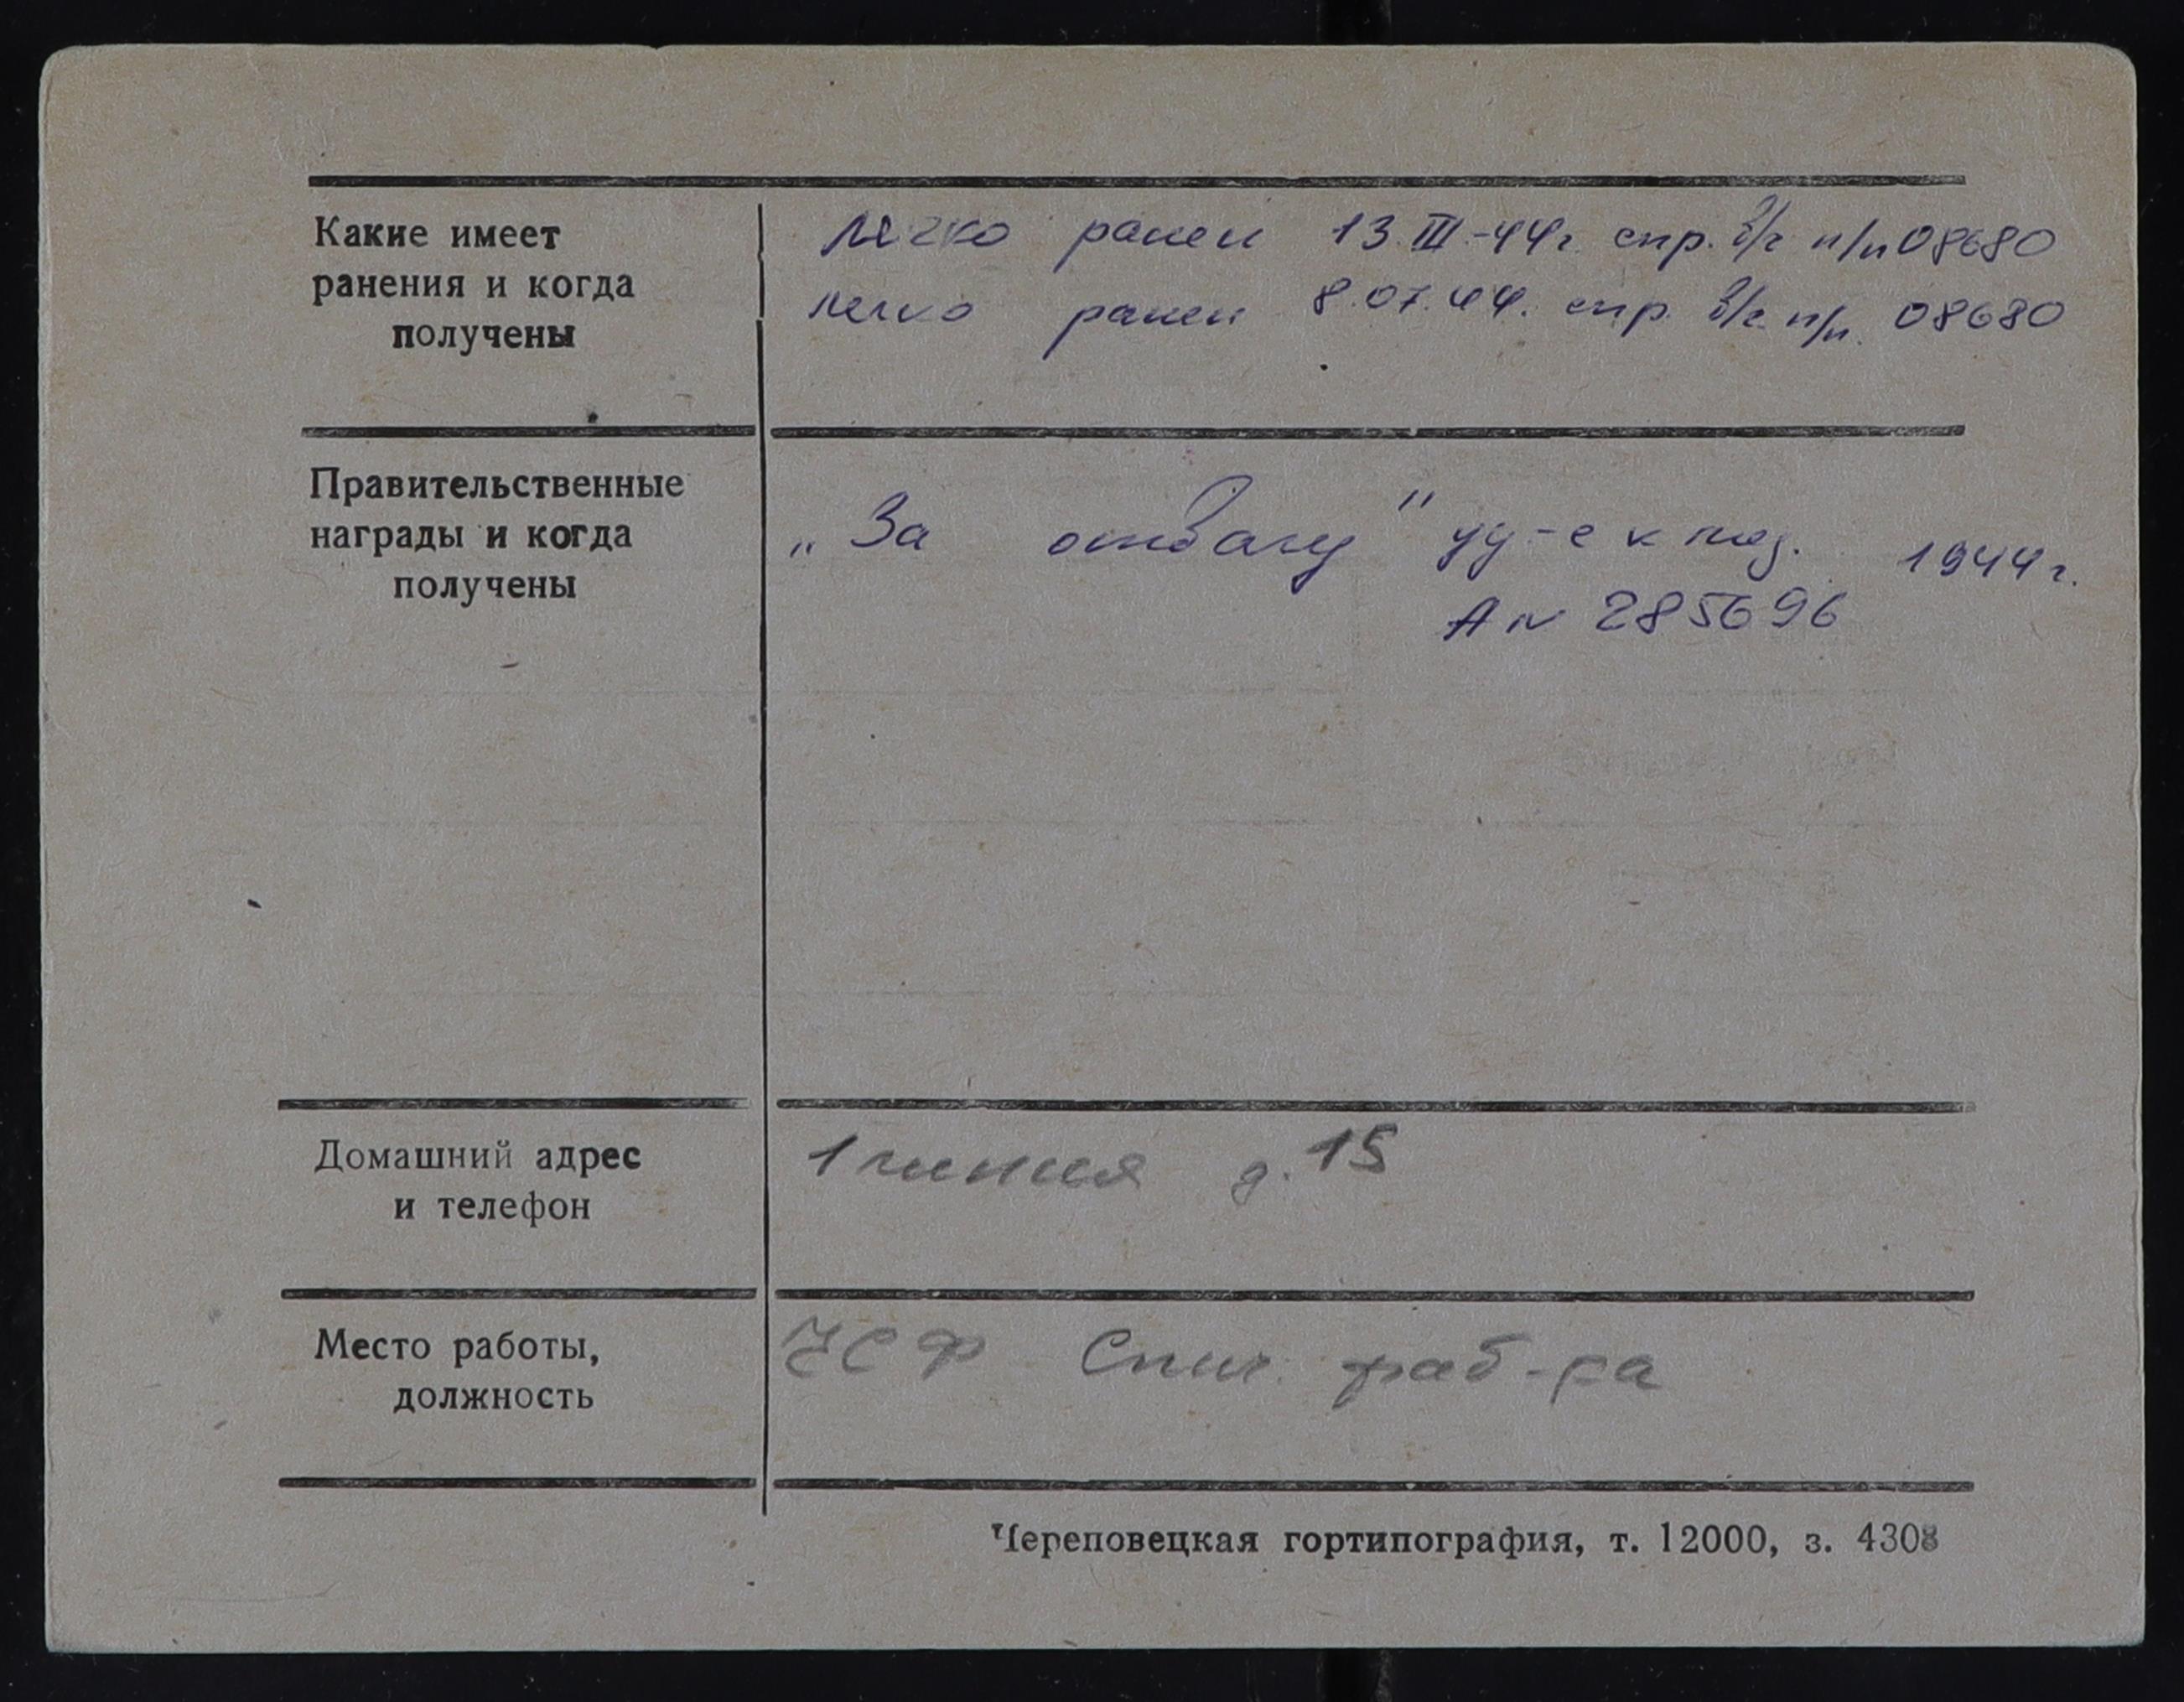 Какие имеет
ранения и когда
получены
легко ранен 13.III-44г. спр. в/г п/п 08680
легко ранен 8.07.44. спр. в/г п/п. 08680
Правительственные
награды и когда
получены
„За отвагу" уд-е 1944г.
А N 285696
Домашний адрес
и телефон
1 линия д. 15
Место работы,
должность
ЧСФ Спич. фаб-ка
Череповецкая гортипография, т. 12000, з. 4308